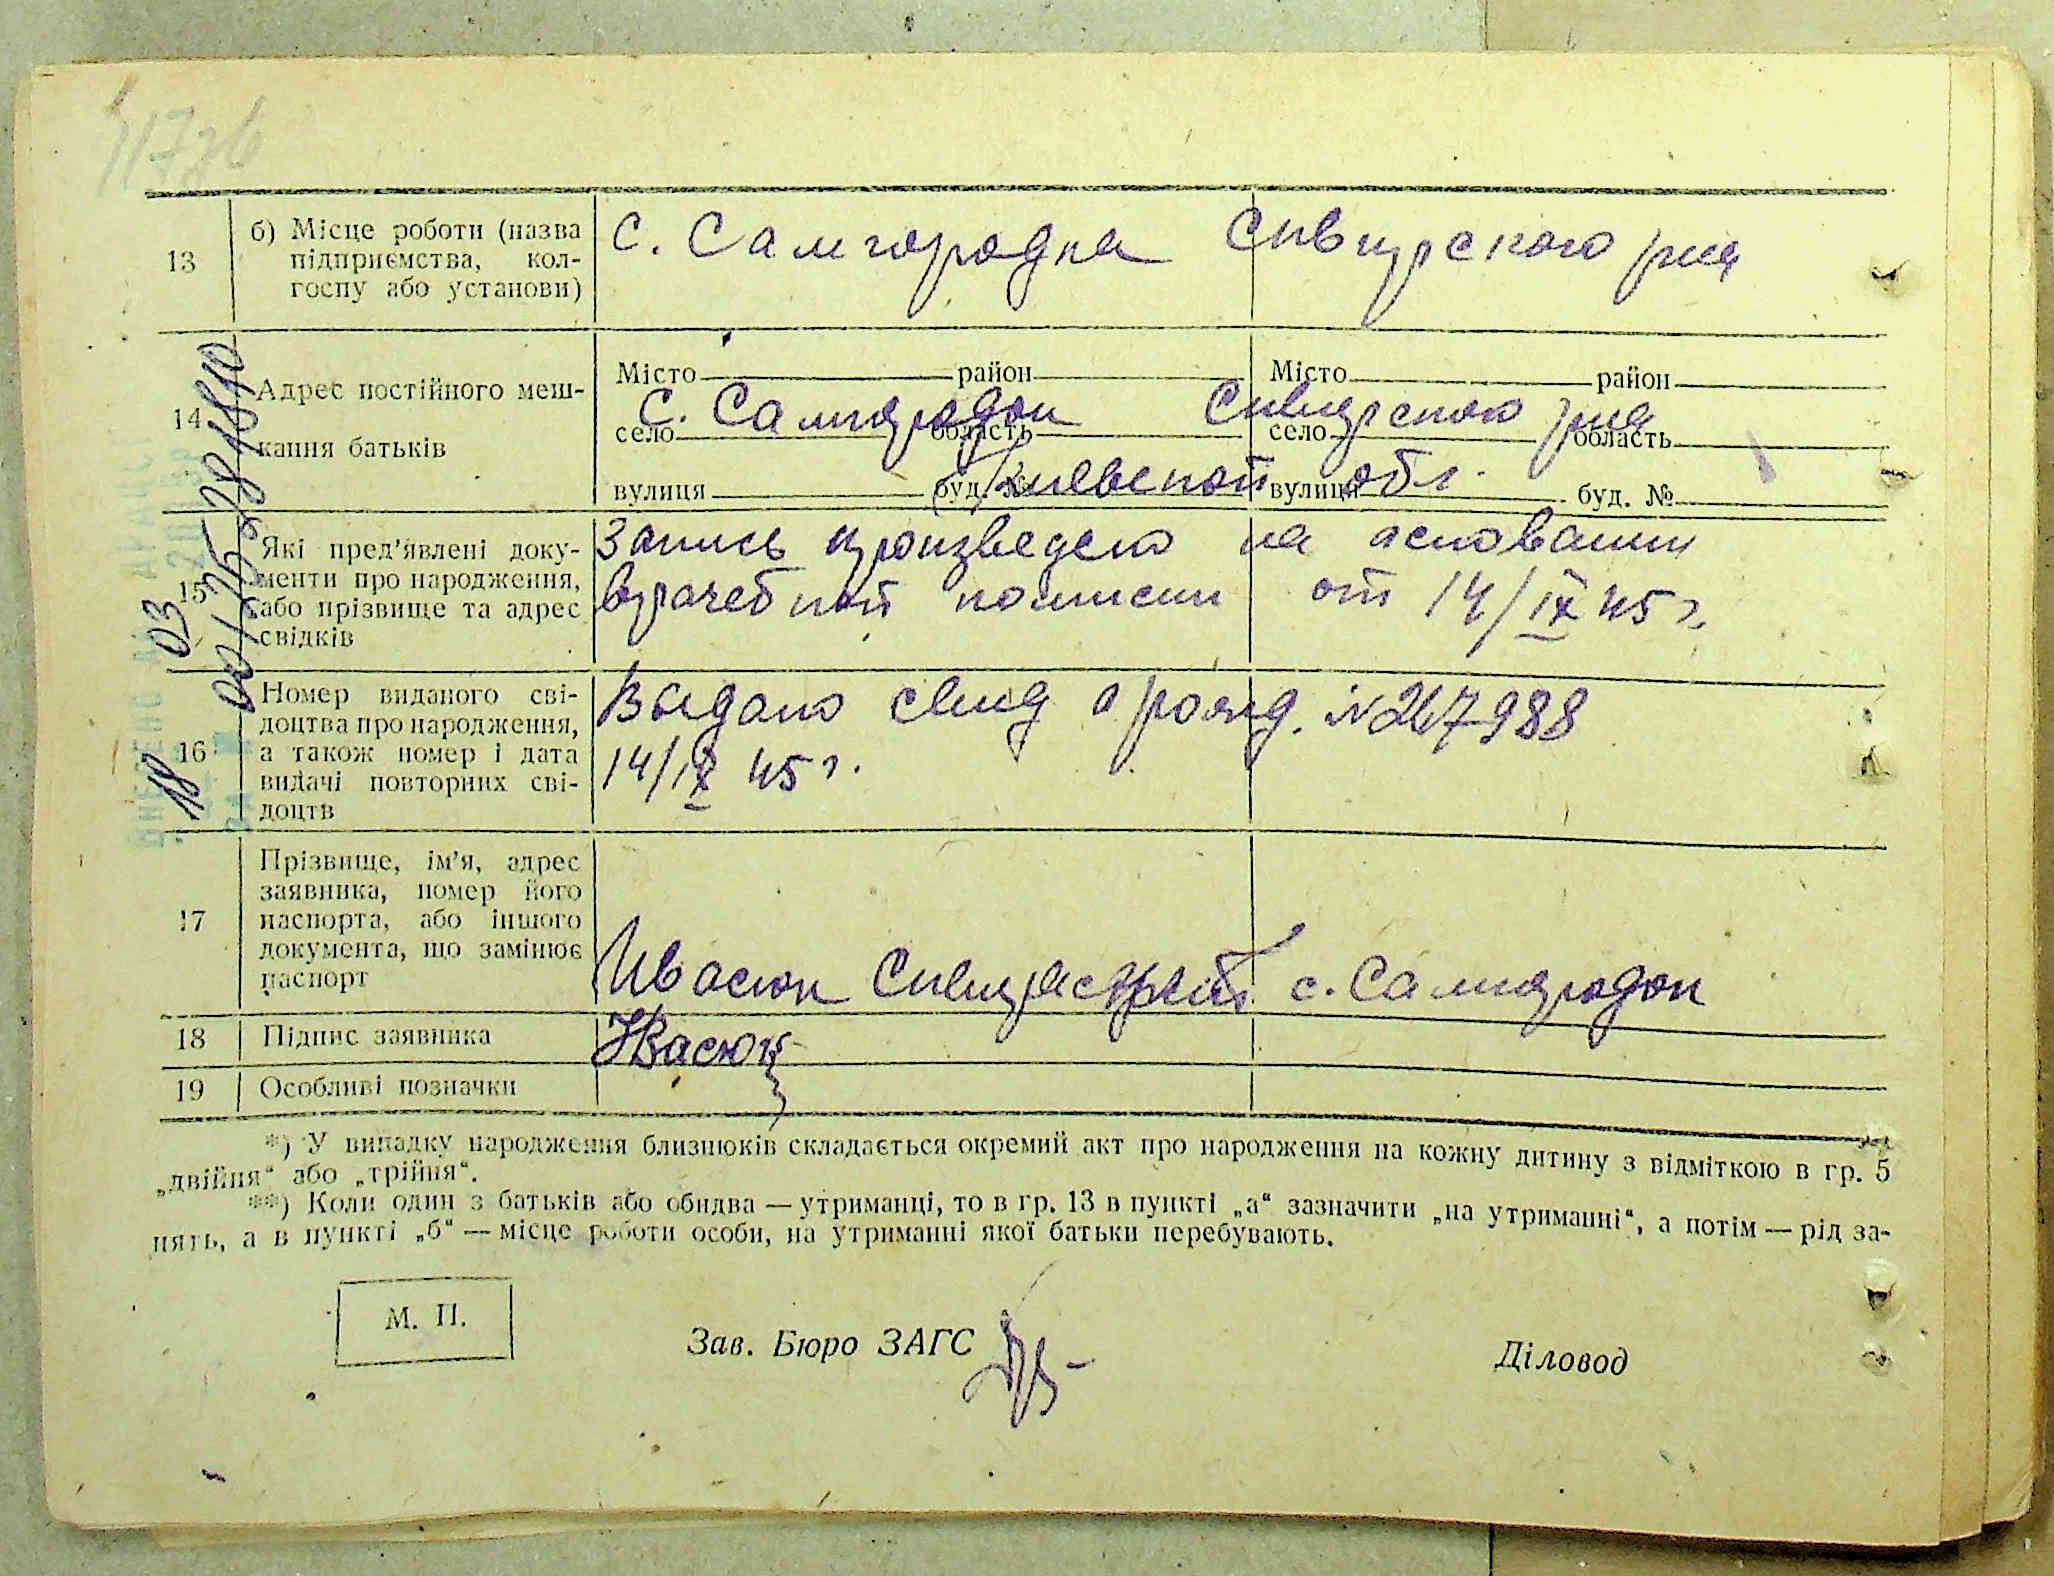 13
б) Місце роботи (назва
підприємства, кол-
госпу або установи)
с. Самгородка Сквирского р-на
14
Адрес постійного меш-
кання батьків
Місто район Місто район
с. Самгородок Сквирского р-на
село область село область
Киевской обл.
вулиця буд. № вулиця буд. №
15
Які пред'явлені доку-
менти про народження,
або прізвище та адрес
свідків
Запись произведена на основании
врачебной комиссии от 14/IX 45 г.
16
Номер виданого сві-
доцтва про народження,
а також номер і дата
видачі повторних сві-
доцтв
Выдано свид о рожд. № 267988
14/IX 45 г.
17
Прізвище, ім'я, адрес
заявника, номер його
паспорта, або іншого
документа, що замінює
паспорт
Ивасюк с. Самгородок
18
Підпис заявника
Ивасюк
19
Особливі позначки
*) У випадку народження близнюків складається окремий акт про народження на кожну дитину з відміткою в гр. 5
„двійня“ або „трійня“.
**) Коли один з батьків або обидва — утриманці, то в гр. 13 в пункті „а“ зазначити „на утриманні“, а потім — рід за-
нять, а в пункті „б“ — місце роботи особи, на утриманні якої батьки перебувають.
М. П.
Зав. Бюро ЗАГС
Діловод